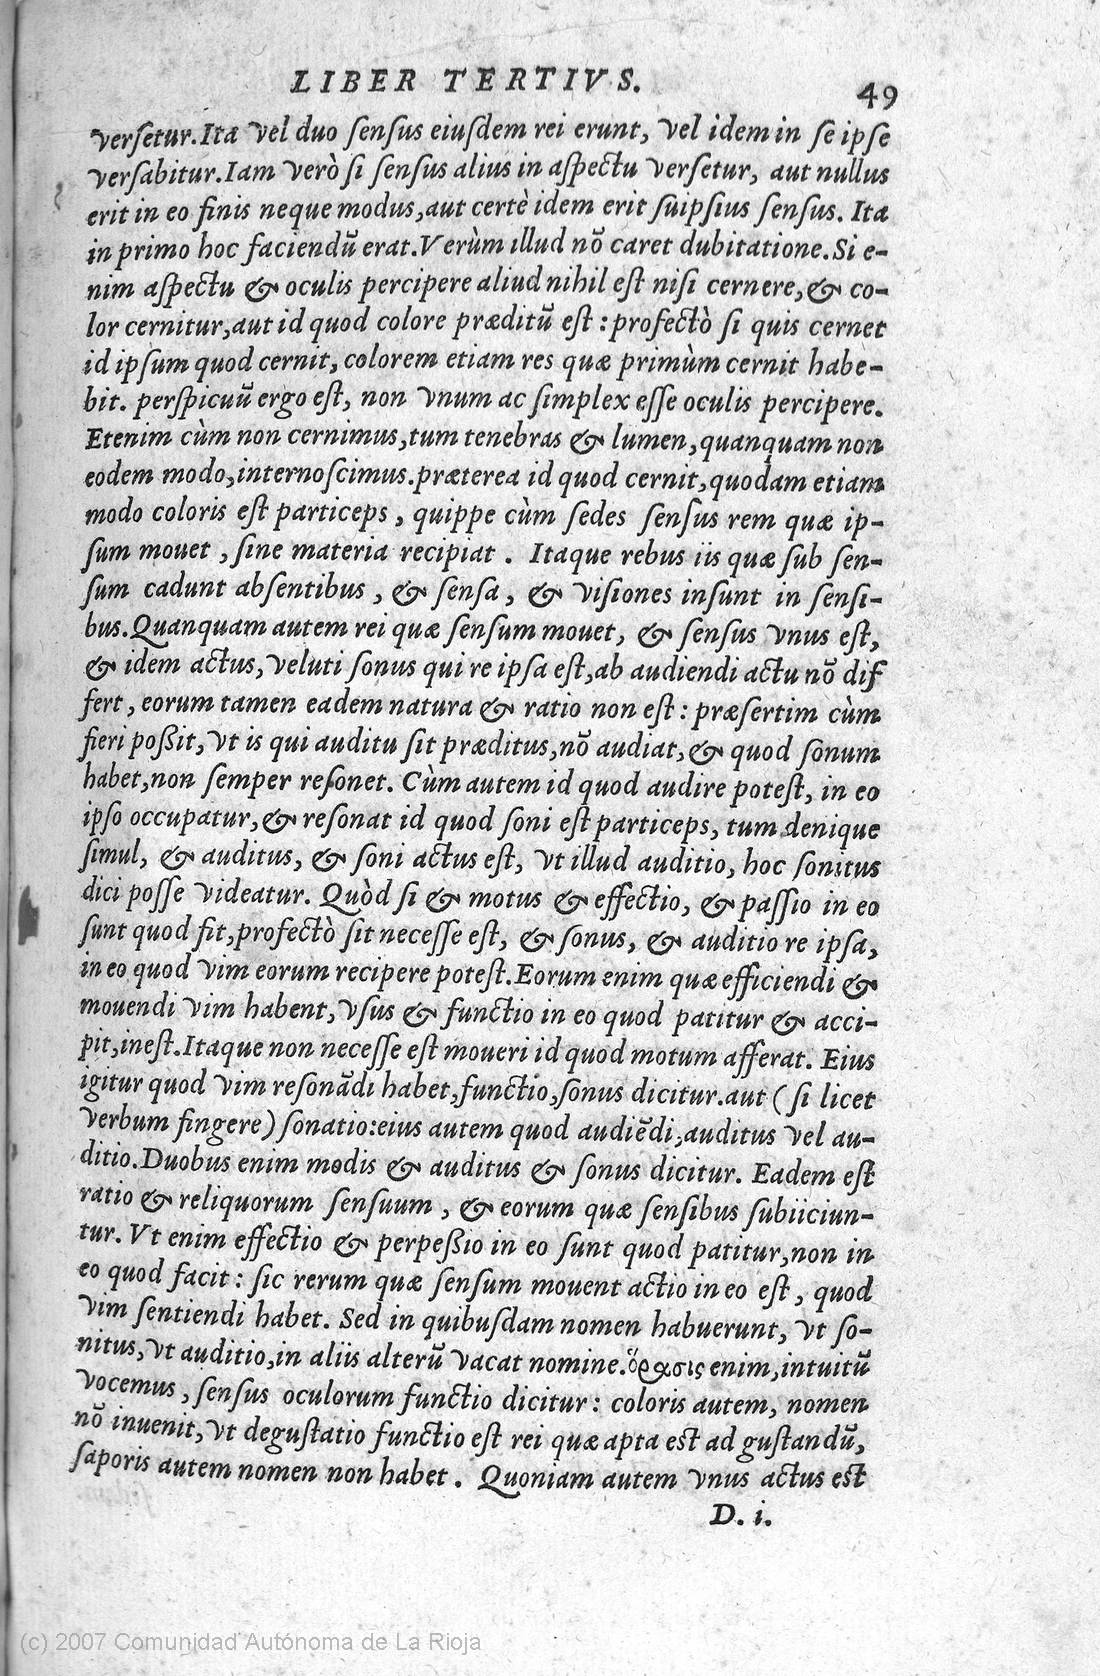 LIBER TERTIVS.
49
versetur. Ita vel duo sensus eiusdem rei erunt, vel idem in se ipse
versabitur. Iam verò si sensus alius in aspectu versetur, aut nullus
erit in eo finis neque modus, aut certè idem erit suipsius sensus. Ita
in primo hoc faciendū erat. Verùm illud nō caret dubitatione. Si e-
nim aspectu & oculis percipere aliud nihil est nisi cernere, & co-
lor cernitur, aut id quod colore præditū est: profectò si quis cernet
id ipsum quod cernit, colorem etiam res quæ primùm cernit habe-
bit. perspicuū ergo est, non vnum ac simplex esse oculis percipere.
Etenim cùm non cernimus, tum tenebras & lumen, quanquam non
eodem modo, internoscimus. præterea id quod cernit, quodam etiam
modo coloris est particeps, quippe cùm sedes sensus rem quæ ip-
sum mouet, sine materia recipiat. Itaque rebus iis quæ sub sen-
sum cadunt absentibus, & sensa, & visiones insunt in sensi-
bus. Quanquam autem rei quæ sensum mouet, & sensus vnus est,
& idem actus, veluti sonus qui re ipsa est, ab audiendi actu nō dif
fert, eorum tamen eadem natura & ratio non est: præsertim cùm
fieri poßit, vt is qui auditu sit præditus, nō audiat, & quod sonum
habet, non semper resonet. Cùm autem id quod audire potest, in eo
ipso occupatur, & resonat id quod soni est particeps, tum denique
simul, & auditus, & soni actus est, vt illud auditio, hoc sonitus
dici posse videatur. Quòd si & motus & effectio, & passio in eo
sunt quod fit, profectò sit necesse est, & sonus, & auditio re ipsa,
in eo quod vim eorum recipere potest. Eorum enim quæ efficiendi &
mouendi vim habent, vsus & functio in eo quod patitur & acci-
pit, inest. Itaque non necesse est moueri id quod motum afferat. Eius
igitur quod vim resonādi habet, functio, sonus dicitur. aut (si licet
verbum fingere) sonatio: eius autem quod audiēdi, auditus vel au-
ditio. Duobus enim modis & auditus & sonus dicitur. Eadem est
ratio & reliquorum sensuum, & eorum quæ sensibus subiiciun-
tur. Vt enim effectio & perpeßio in eo sunt quod patitur, non in
eo quod facit: sic rerum quæ sensum mouent actio in eo est, quod
vim sentiendi habet. Sed in quibusdam nomen habuerunt, vt so-
nitus, vt auditio, in aliis alterū vacat nomine. ὅρασις enim, intuitū
vocemus, sensus oculorum functio dicitur: coloris autem, nomen
nō inuenit, vt degustatio functio est rei quæ apta est ad gustandū,
saporis autem nomen non habet. Quoniam autem vnus actus est
D. i.
(c) 2007 Comunidad Autónoma de La Rioja